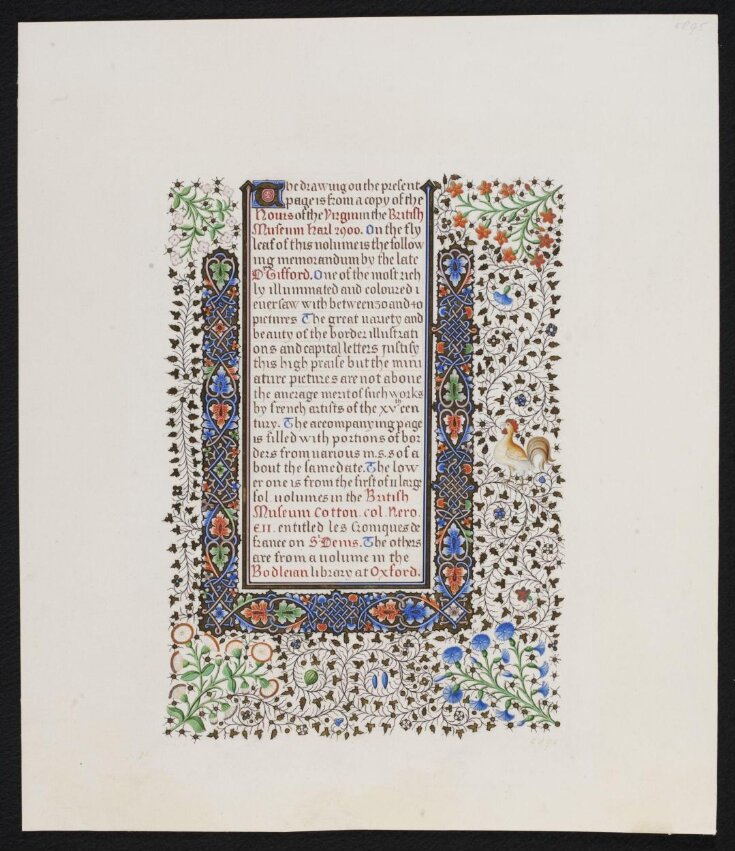 5895
The drawing on the present
page is from a copy of the
Hours of the Virgin in the British
Museum Harl 2900. On the fly
leaf of this volume is the follow
ing memorandum by the late
Dr Gifford. One of the most rich
ly illuminated and coloured i
ever saw with between 30 and 40
pictures The great variety and
beauty of the border illustrati
ons and capital letters justify
this high praise but the mini
ature pictures are not above
the average merit of such works
by french artists of the xvth cen
tury. The accompanying page
is filled with portions of bor
ders from various m.s.s of a
bout the same date. The low
er one is from the first of 11 large
fol volumes in the British
Museum Cotton. col. Nero.
E.II. entitled les Croniques de
france on St Denis. The others
are from a volume in the
Bodleian library at Oxford.